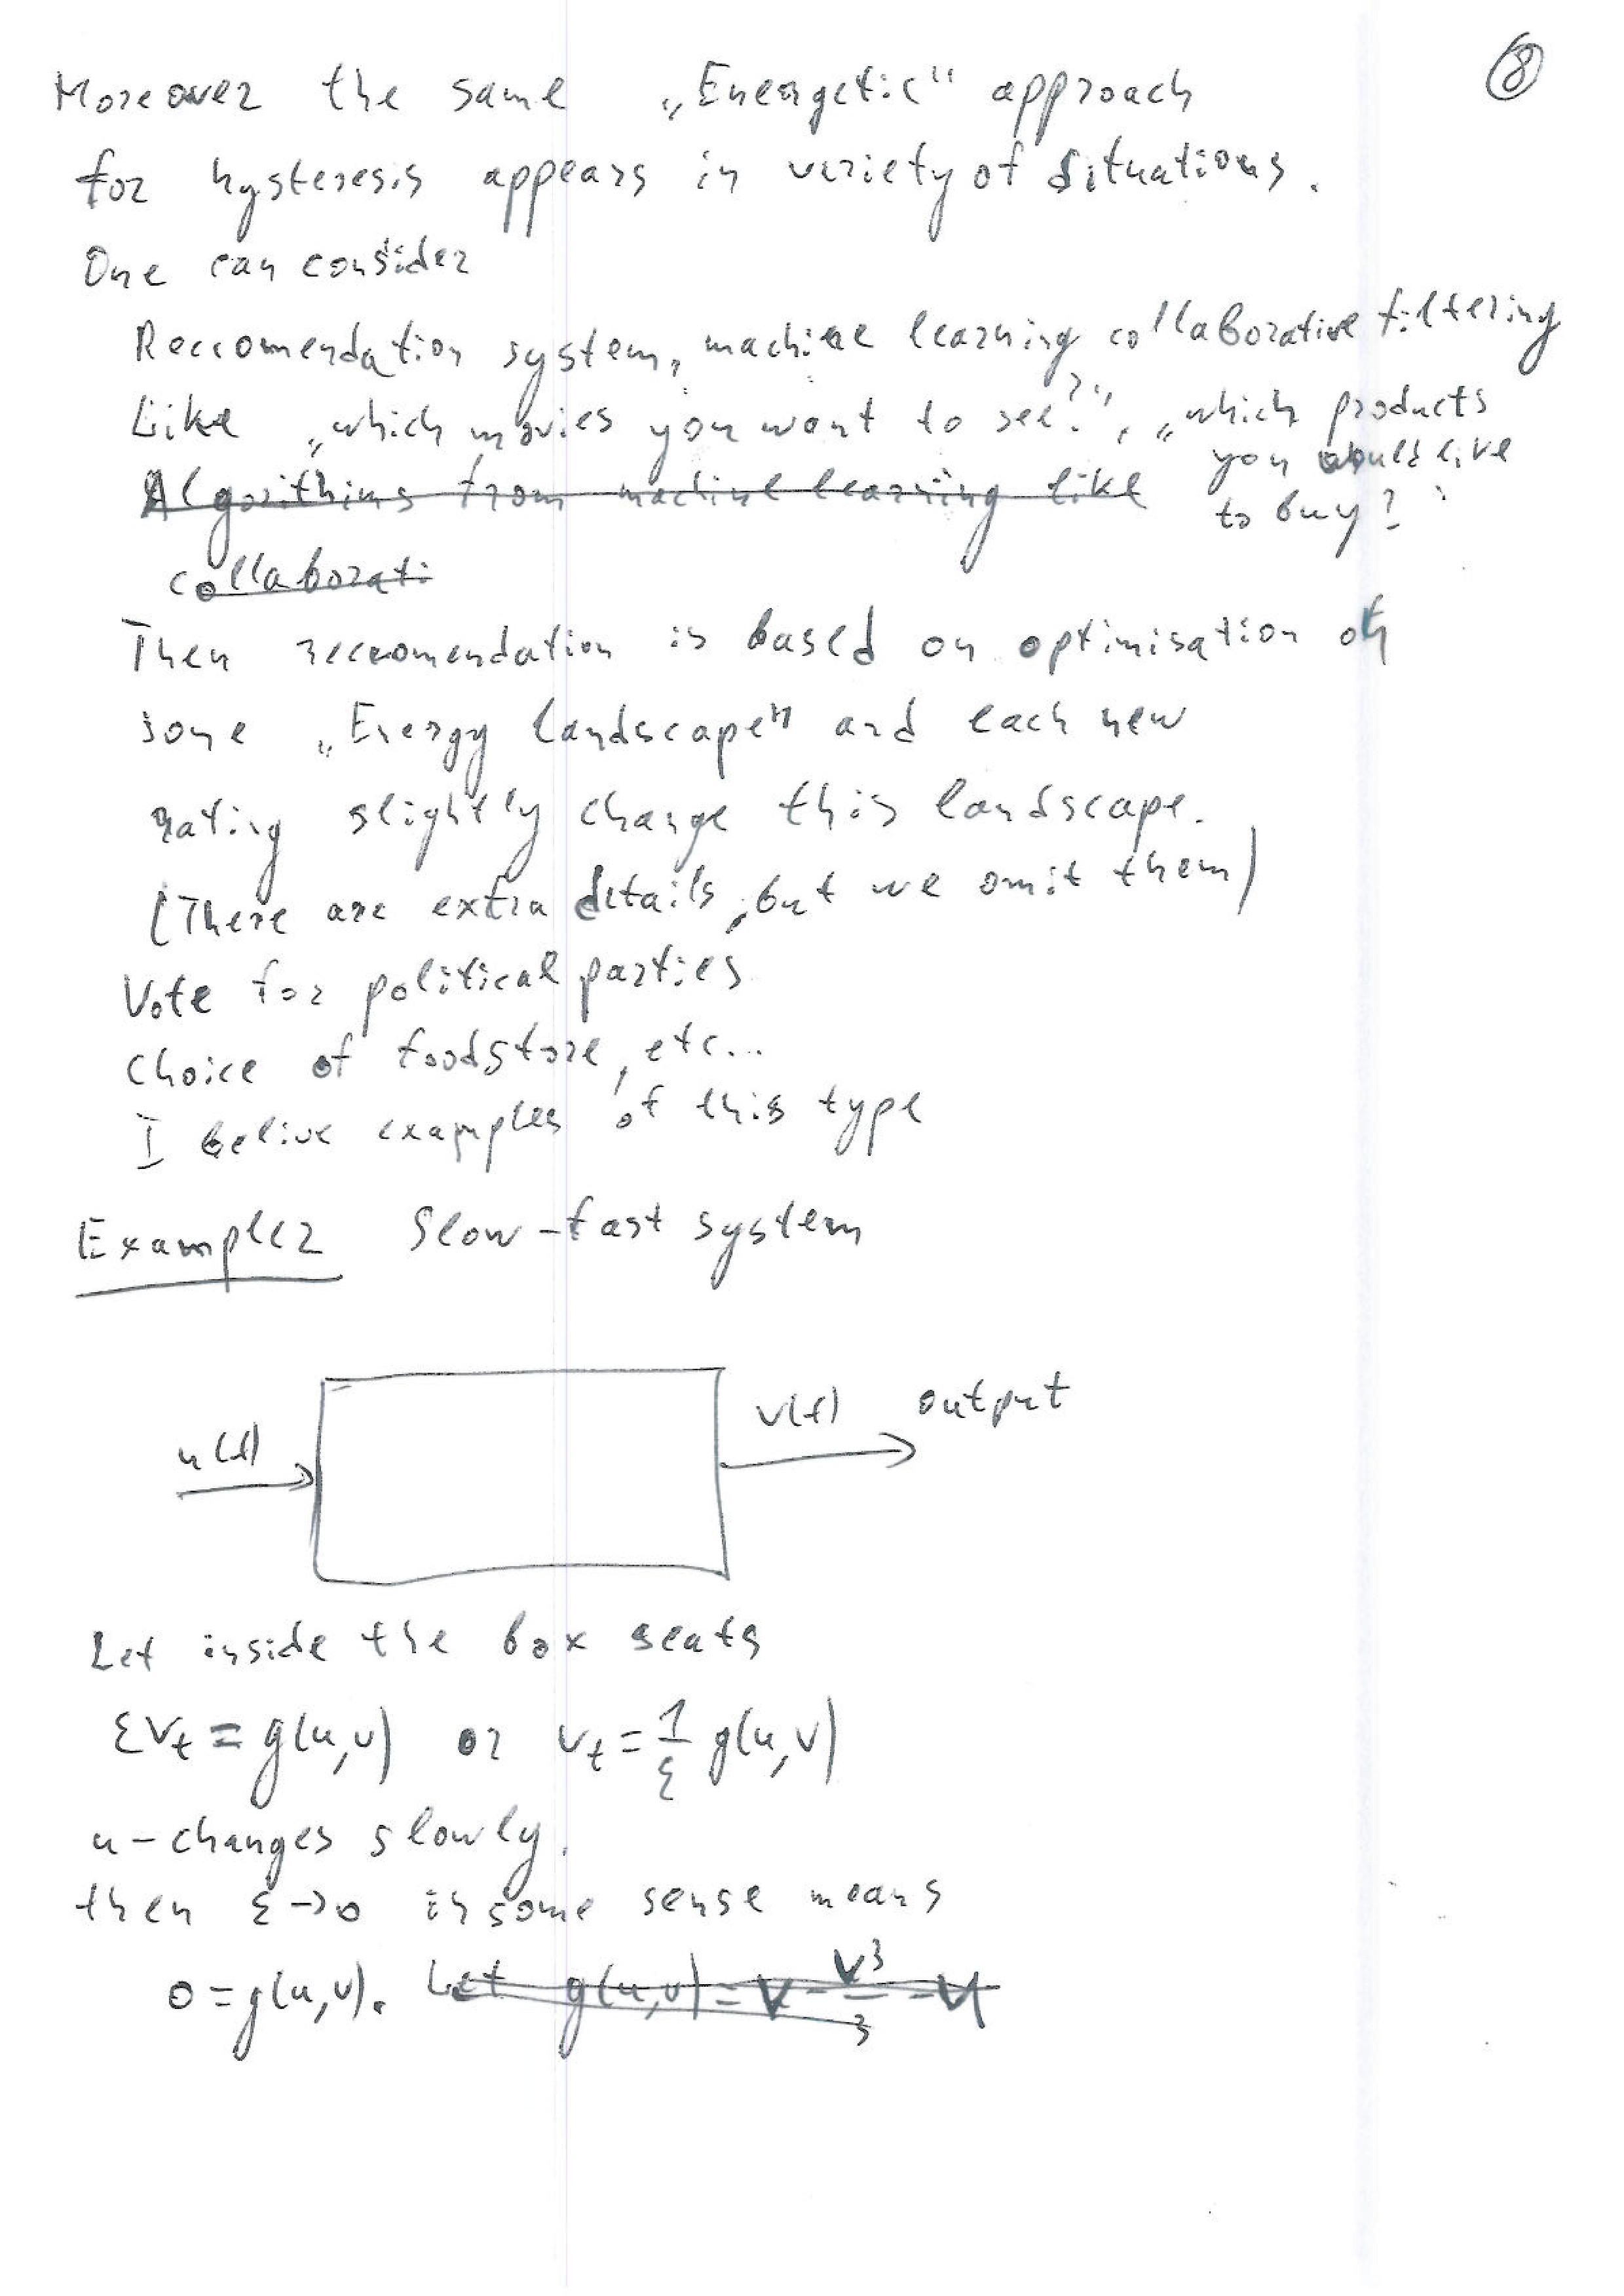 8
Moreover the same „Energetic" approach
for hysteresis appears in variety of situations.
One can consider
Reccomendation system, machine learning collaborative filtering
Like „which movies you want to see?", „which products
you would like
to buy?"
Algorithms from machine learning like
collaborati
Then reccomendation is based on optimisation of
some „Energy landscape" and each new
rating slightly change this landscape.
(There are extra details, but we omit them)
Vote for political parties
Choice of foodstore, etc...
I belive examples of this type
Example 2 Slow-fast system
u(t)
v(t) output
Let inside the box seats
εv_t = g(u,v) or v_t = 1/ε g(u,v)
u - changes slowly.
then ε→0 in some sense means
0 = g(u,v). Let g(u,v) = v - v³/3 - u